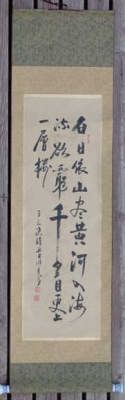 白日依山盡黄河入海
流欲窮千里目更上
一層樓